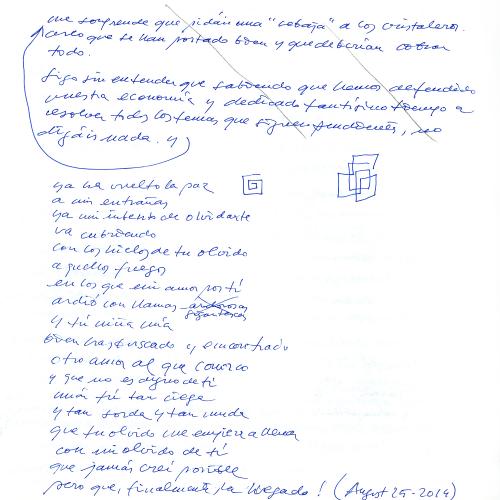 me sorprende que pidan una "rebaja" a los cristaleros.
creo que se han portado bien y que deberian cobrar
todo.
Sigo sin entender que sabiendo que hemos defendido
vuestra economía y dedicado tantísimo tiempo a
resolver todos los temas que siguen pendientes, no
digáis nada. y
ya ha vuelto la paz
a mis entrañas
ya mi intento de olvidarte
va cubriendo
con los hielos de tu olvido
aquellos fuegos
en los que mi amor por tí
ardió con llamas ardorosas
gigantescas
y tú niña mía
bien has buscado y encontrado
otro amor al que conozco
y que no es digno de ti
mas tú tan ciega
y tan sorda y tan muda
que tu olvido me empieza a llenar
con mi olvido de tí
que jamás creí posible
pero que, finalmente ha llegado! (August 25-2014)